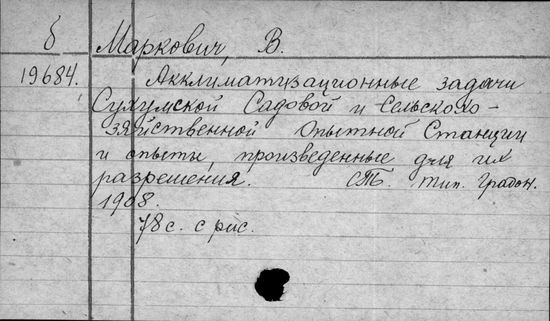 б Маркович, В.
19684. Акклиматизационные задачи
Сухумской Садовой и Сельскохо-
зяйственной Опытной Станции
и опыты, произведенные для их
разрешения. СПБ. тип. Градон.
1908.
78 с. с рис.